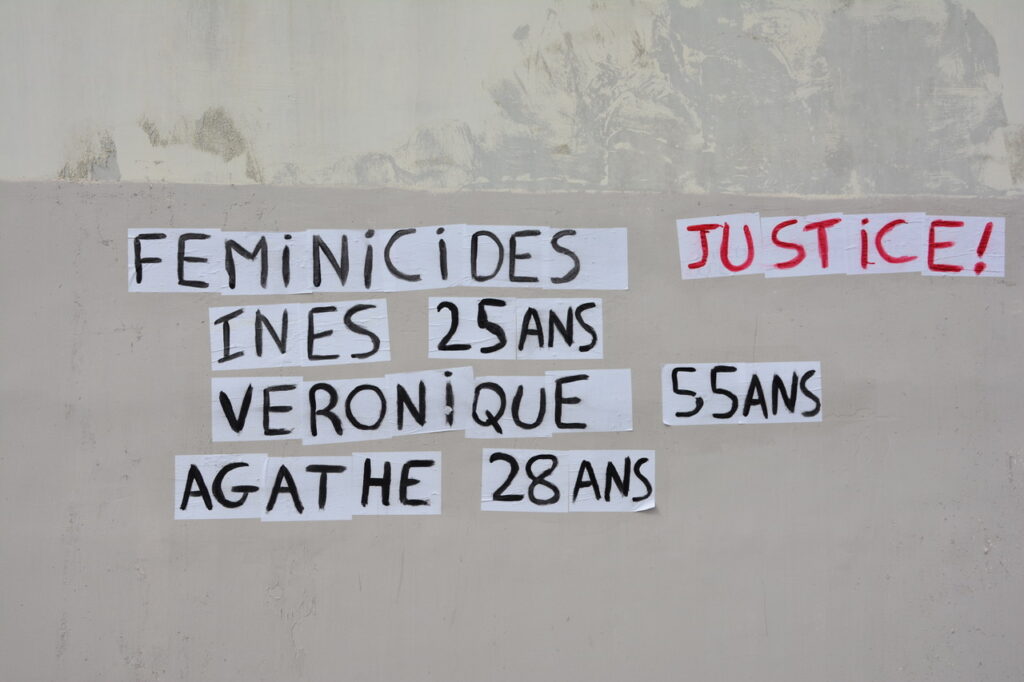 FEMiNiCiDES JUSTiCE!
INES 25ANS
VERONiQUE 55ANS
AGATHE 28ANS